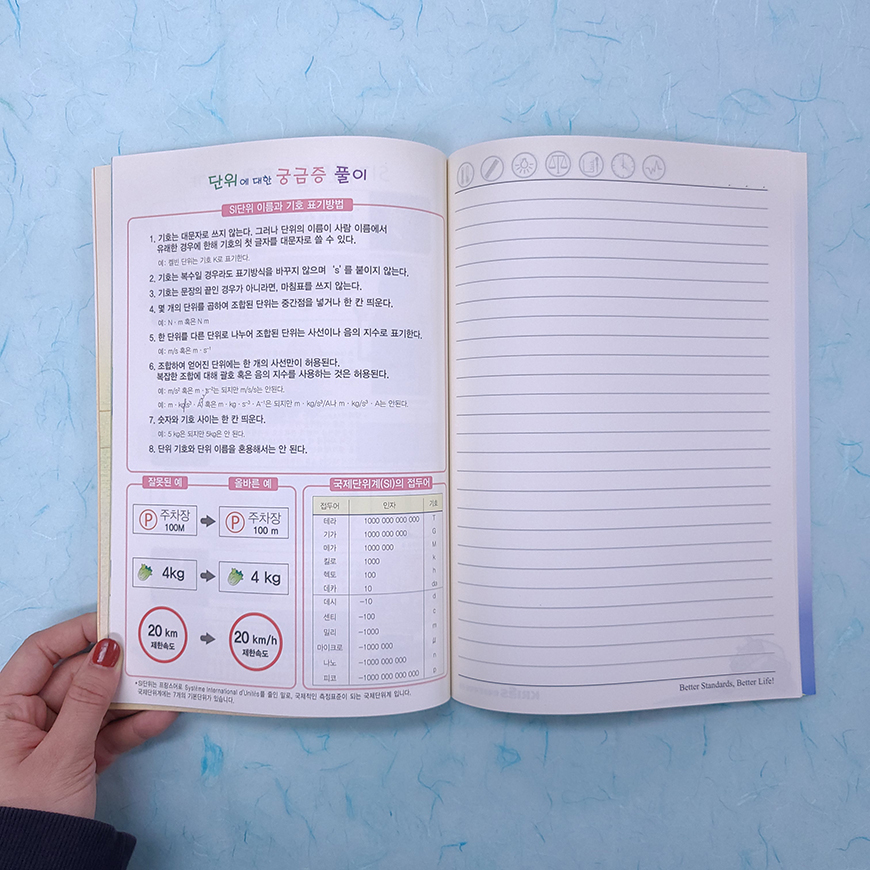 단위에 대한 궁금증 풀이
SI단위 이름과 기호 표기방법
1. 기호는 대문자로 쓰지 않는다. 그러나 단위의 이름이 사람 이름에서
유래한 경우에 한해 기호의 첫 글자를 대문자로 쓸 수 있다.
예: 켈빈 단위는 기호 K로 표기한다.
2. 기호는 복수일 경우라도 표기방식을 바꾸지 않으며 's'를 붙이지 않는다.
3. 기호는 문장의 끝인 경우가 아니라면, 마침표를 쓰지 않는다.
4. 몇 개의 단위를 곱하여 조합된 단위는 중간점을 넣거나 한 칸 띄운다.
예: N · m 혹은 N m
5. 한 단위를 다른 단위로 나누어 조합된 단위는 사선이나 음의 지수로 표기한다.
예: m/s 혹은 m · s⁻¹
6. 조합하여 얻어진 단위에는 한 개의 사선만이 허용된다.
복잡한 조합에 대해 괄호 혹은 음의 지수를 사용하는 것은 허용된다.
예: m/s² 혹은 m · s⁻²는 되지만 m/s/s는 안된다.
예: m · kg/(s³ · A) 혹은 m · kg · s⁻³ · A⁻¹은 되지만 m · kg/s³/A나 m · kg/s³ · A는 안된다.
7. 숫자와 기호 사이는 한 칸 띄운다.
예: 5 kg은 되지만 5kg은 안 된다.
8. 단위 기호와 단위 이름을 혼용해서는 안 된다.
잘못된 예 올바른 예
P 주차장 100M P 주차장 100 m
4kg 4 kg
20 km 제한속도 20 km/h 제한속도
국제단위계(SI)의 접두어
접두어 인자 기호
테라 1000 000 000 000 T
기가 1000 000 000 G
메가 1000 000 M
킬로 1000 k
헥토 100 h
데카 10 da
데시 -10 d
센티 -100 c
밀리 -1000 m
마이크로 -1000 000 μ
나노 -1000 000 000 n
피코 -1000 000 000 000 p
*SI단위는 프랑스어로 Système International d'Unités를 줄인 말로, 국제적인 측정표준이 되는 국제단위계 입니다.
국제단위계에는 7개의 기본단위가 있습니다.
Better Standards, Better Life!